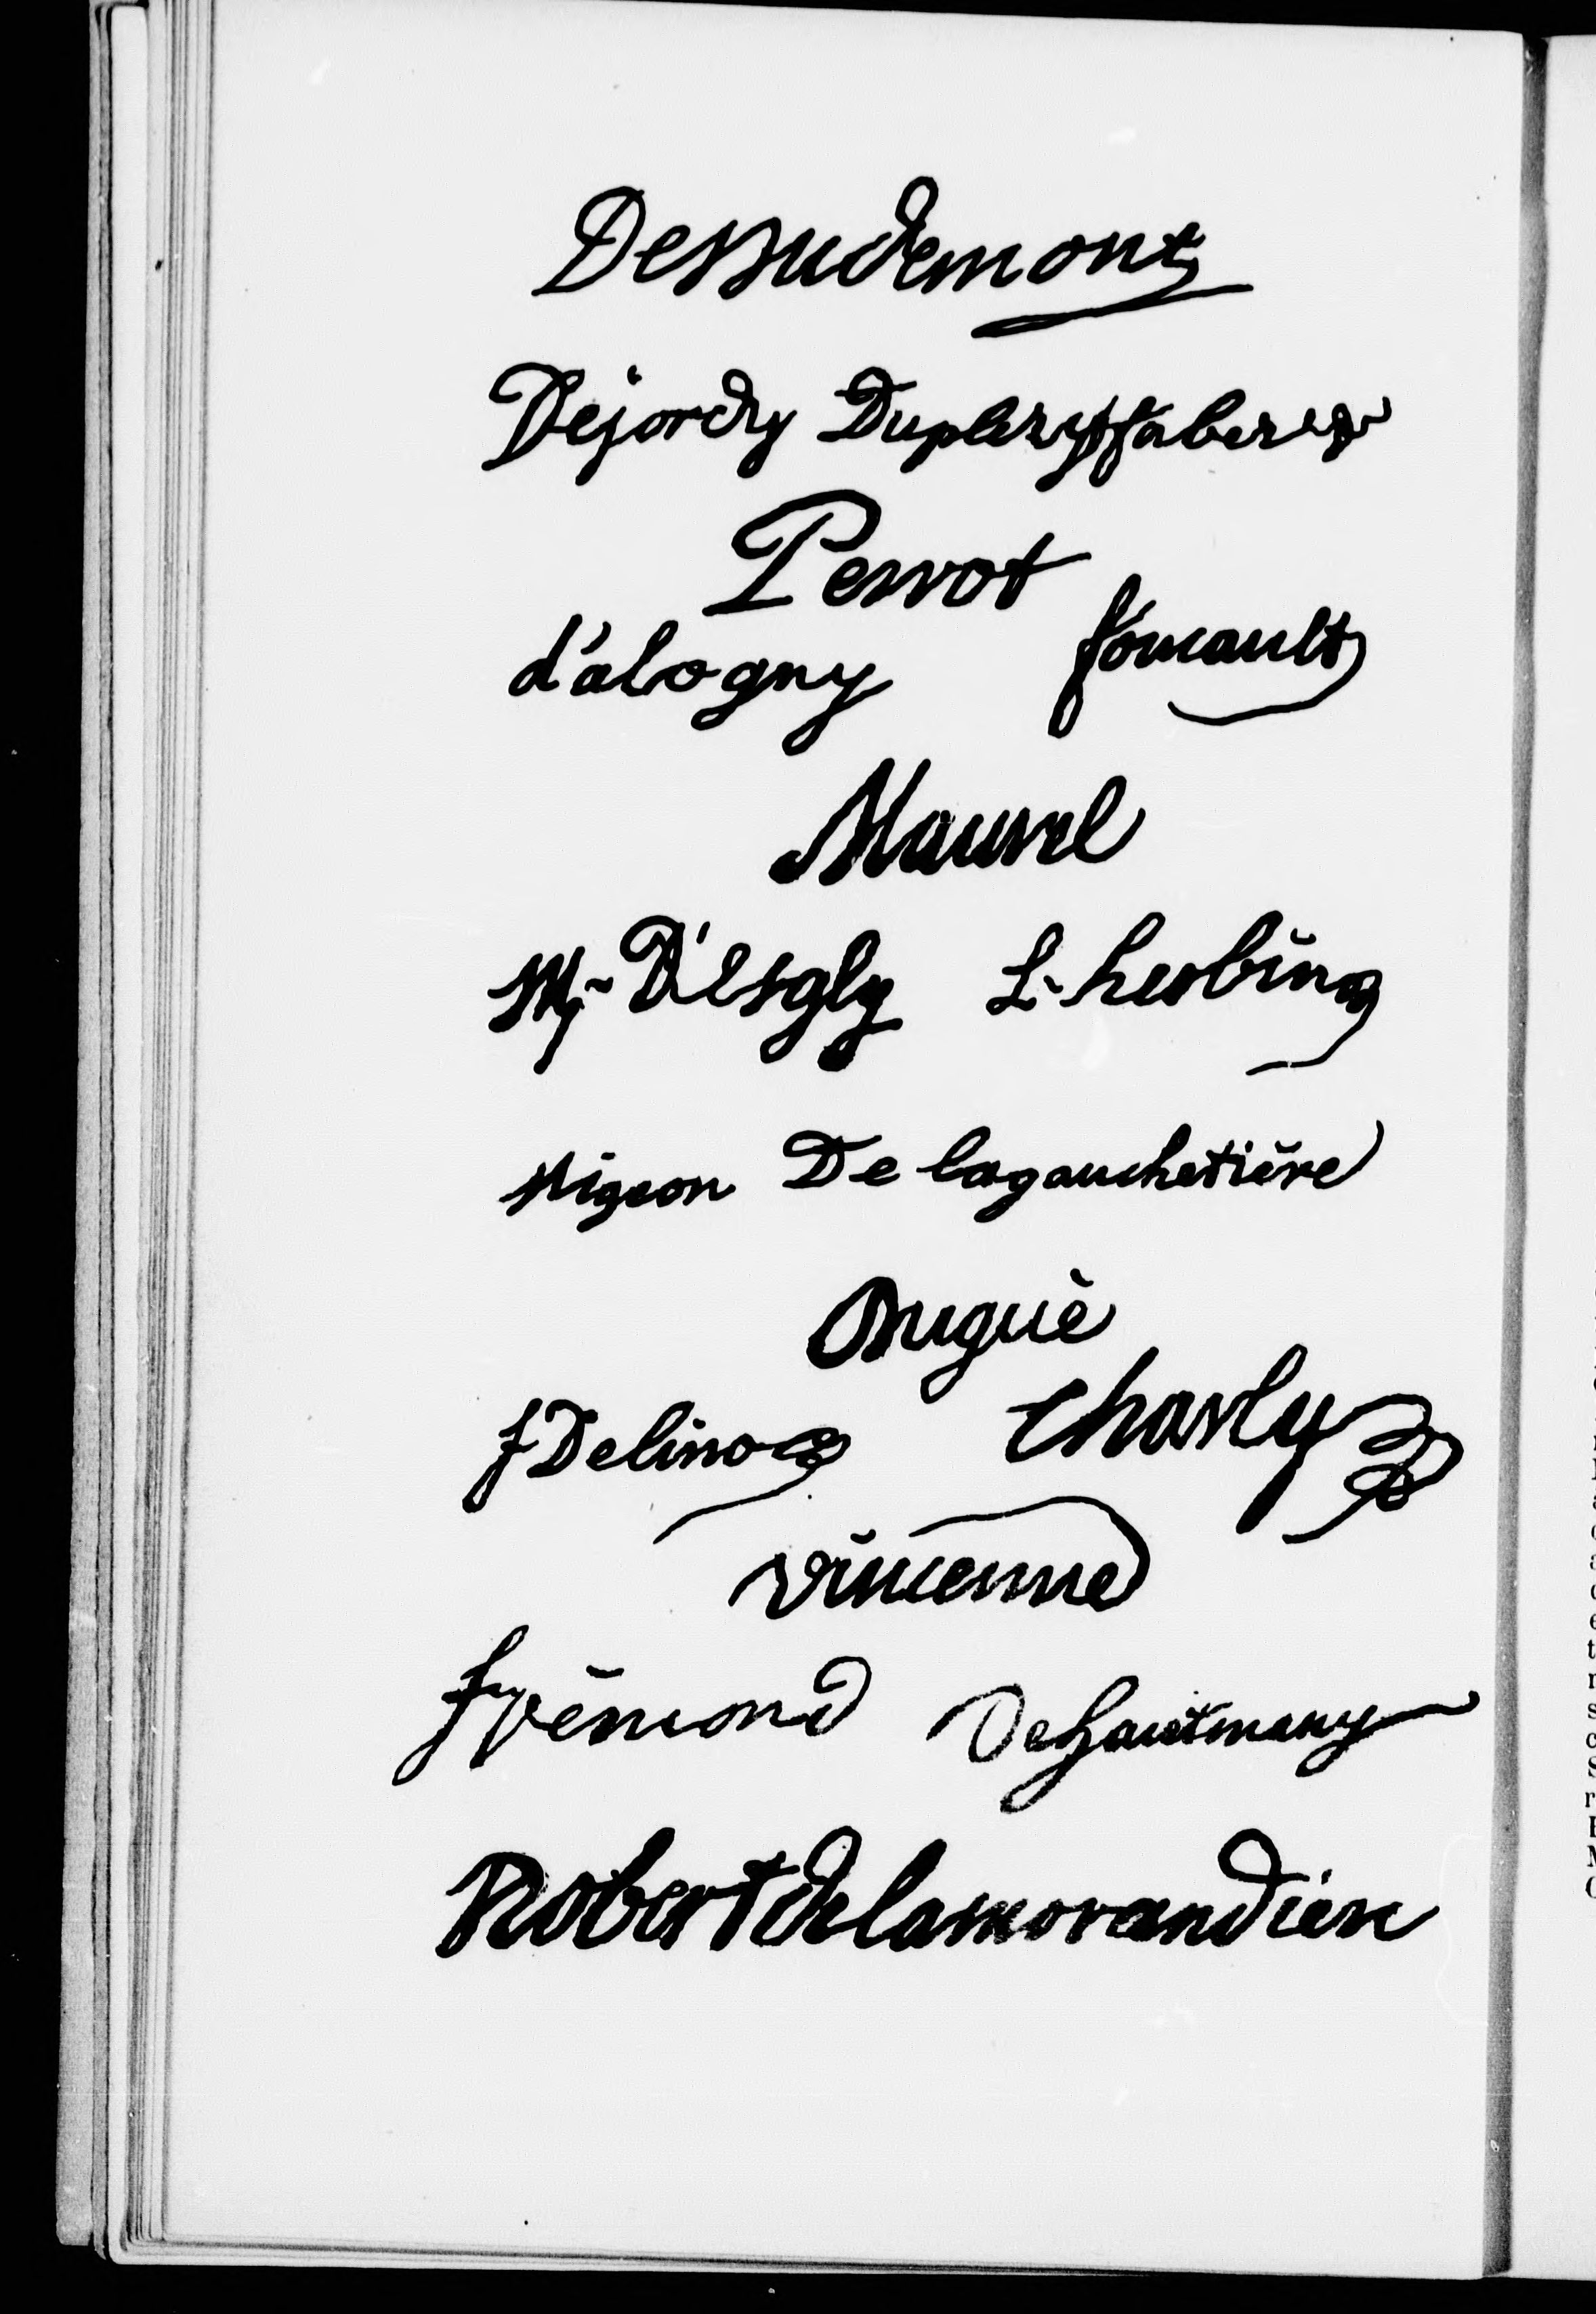 Dessudemont
Dejordy Duplessyffaber
Perrot
d'alogny foucault
Maurel
My D'Esgly L. herbin
Migeon De lagauchetière
Augué
f Delino Charly
Vincenne
fvémond DeGantmany
Robertdelamorandiere